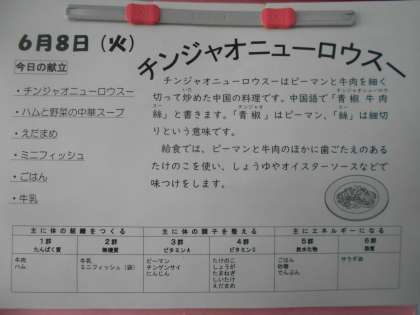 6月8日(火)
チンジャオニューロウスー
今日の献立
・チンジャオニューロウスー
・ハムと野菜の中華スープ
・えだまめ
・ミニフィッシュ
・ごはん
・牛乳
チンジャオニューロウスーはピーマンと牛肉を細く
切って炒めた中国の料理です。中国語で「青椒牛肉
絲」と書きます。「青椒」はピーマン、「絲」は細切
りという意味です。
給食では、ピーマンと牛肉のほかに歯ごたえのある
たけのこを使い、しょうゆやオイスターソースなどで
味つけをします。
主に体の組織をつくる 主に体の調子を整える 主にエネルギーになる
1群 2群 3群 4群 5群 6群
たんぱく質 無機質 ビタミンA ビタミンC 炭水化物 脂質
牛肉 牛乳 ピーマン たけのこ ごはん サラダ油
ハム ミニフィッシュ(袋) チンゲンサイ しょうが 砂糖
にんじん たまねぎ でんぷん
しいたけ
えだまめ